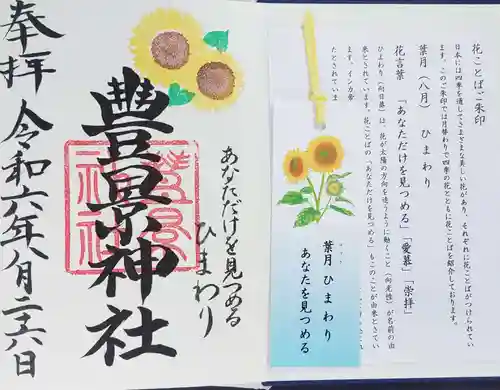 奉拝
令和六年八月二十六日
豊景神社
あなただけを見つめる
ひまわり
花ことば御朱印
日本には四季を通してさまざまな美しい花があり、それぞれに花ことばがつけられてい
ます。この御朱印では月替わりで四季の花とともに花ことばを紹介しております。
葉月(八月) ひまわり
花言葉 「あなただけを見つめる」「愛慕」「崇拝」
ひまわり(向日葵)は、花が太陽の方向を追うように動くこと(向光性)が名前の由
来とされています。花ことばの「あなただけを見つめる」もこのことが由来とさてい
ます。インカ帝
たとされていま
葉月 ひまわり
あなたを見つめる